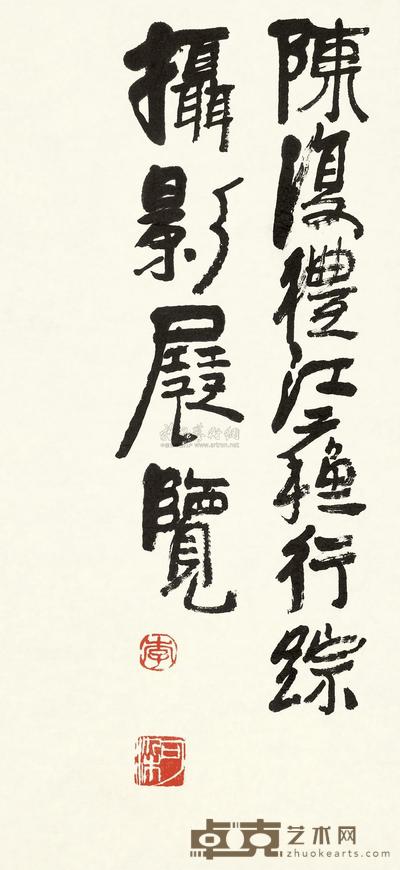 陳復禮江 行踪
攝影展覽
李
可染
www.artron.net
卓克艺术网
zhuokearts.com